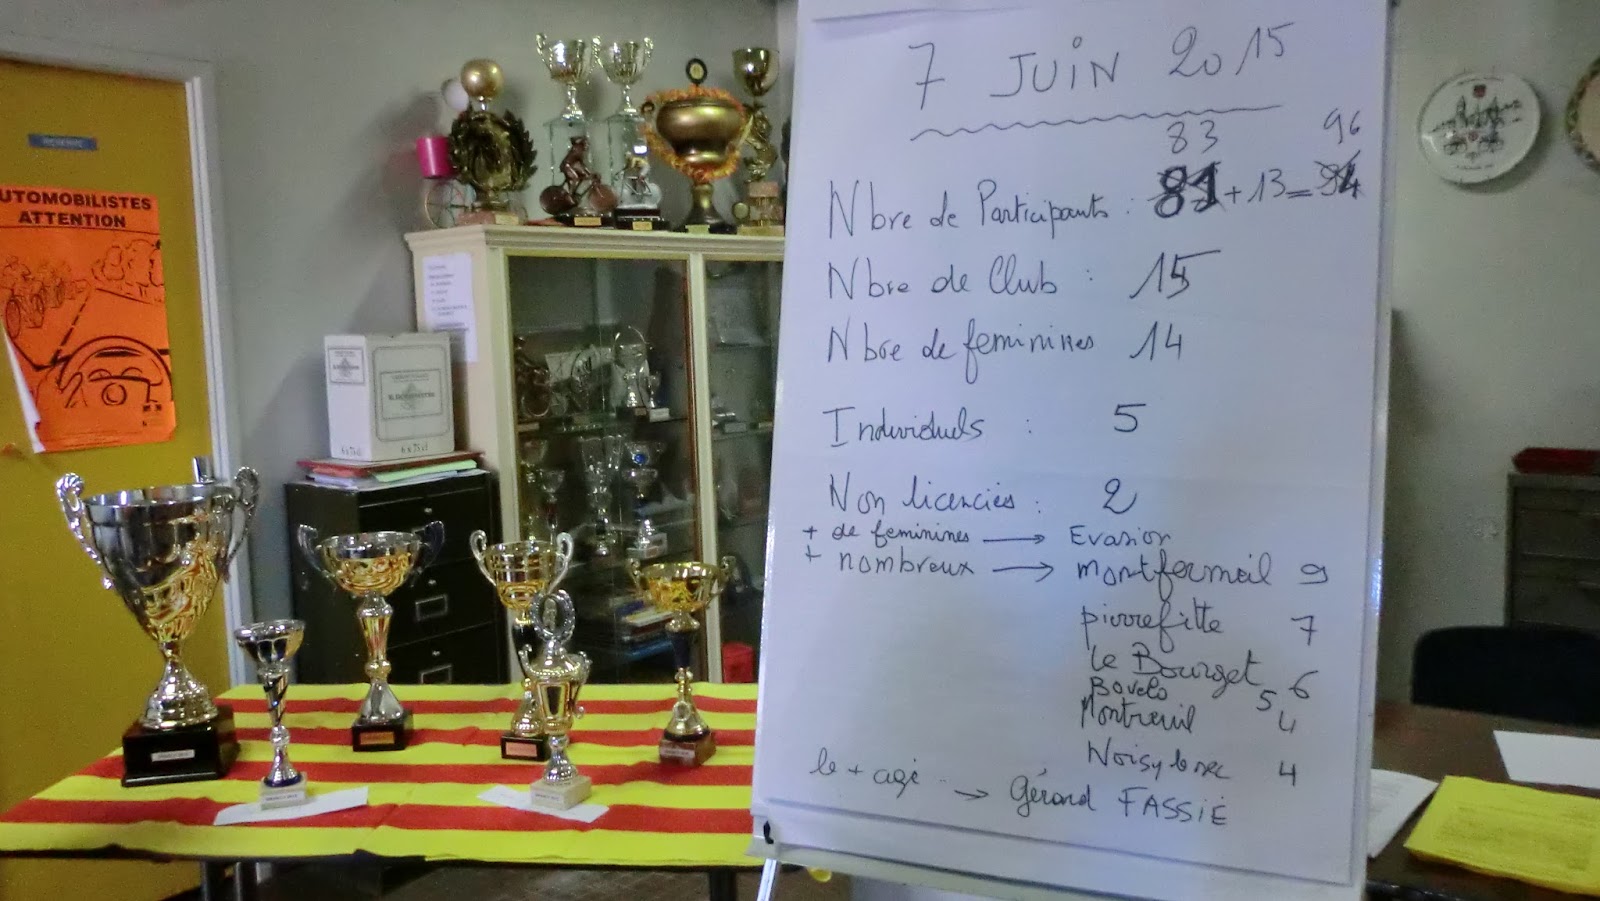 7 JUIN 2015
83 96
Nbre de Participants : 81 + 13 = 94
Nbre de Club : 15
Nbre de feminines 14
Individuels : 5
Non licenciés : 2
+ de feminines → Evasion
+ nombreux → montfermeil 9
pierrefitte 7
le Bourget 6
Bovelo 5
Montreuil 4
Noisy le sec 4
le + agé → Gérard FASSIE
UTOMOBILISTES
ATTENTION
6 x 75 cl
6 x 75 cl